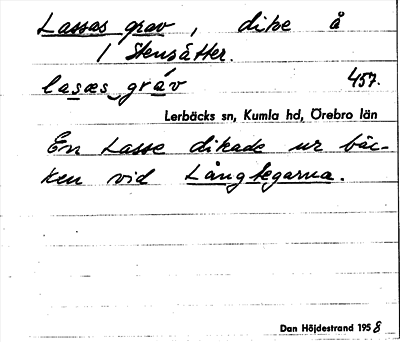 Lassas grav, dike å
1 Stensätter.
lasæs gráv 457.
Lerbäcks sn, Kumla hd, Örebro län
En Lasse dikade ur bäc-
ken vid Långtegarna.
Dan Höjdestrand 1958